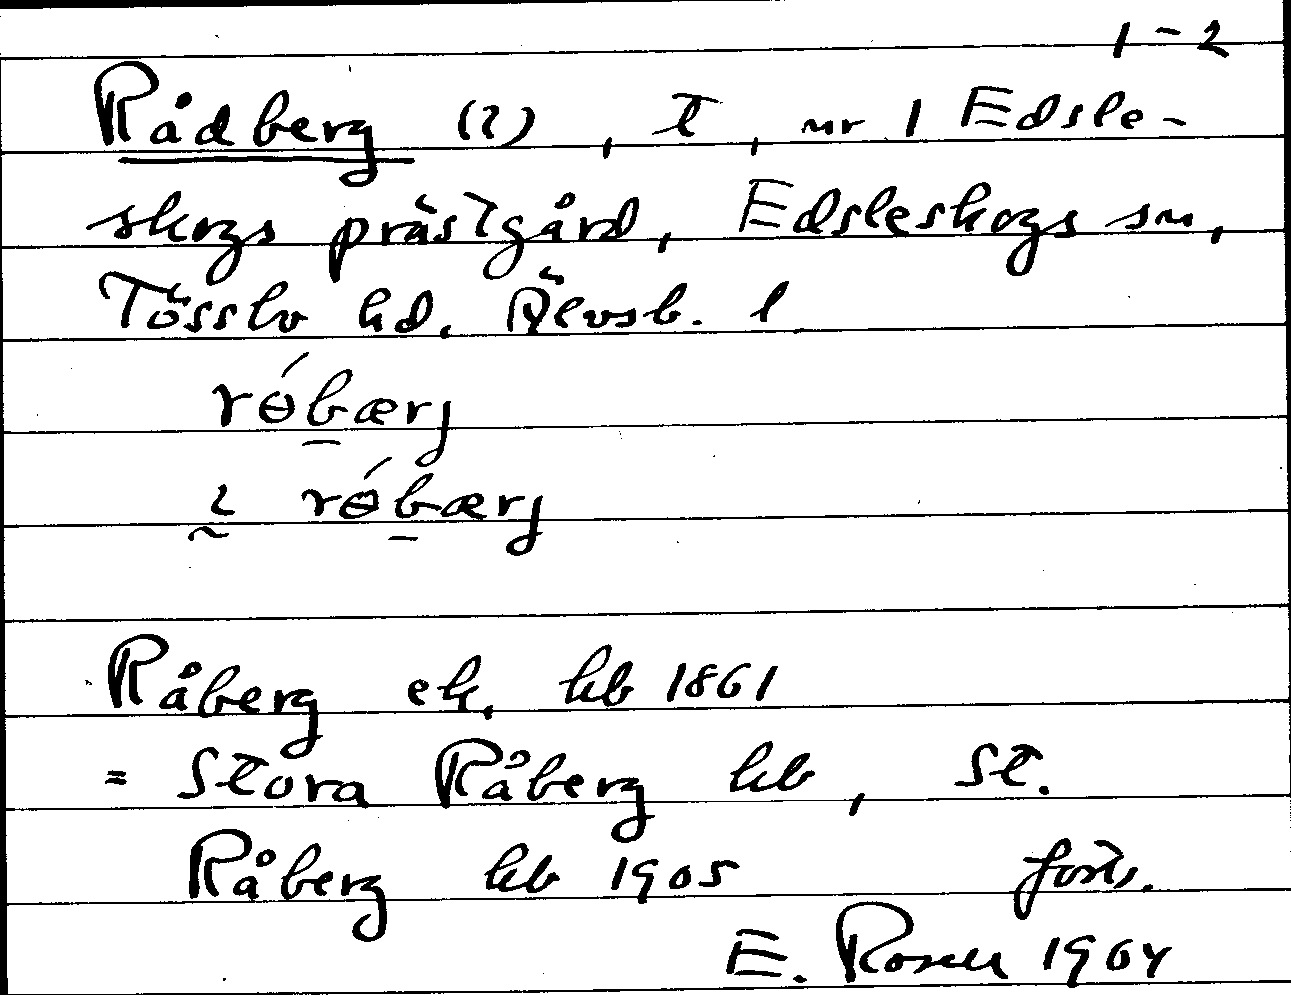 1-2
Rådberg (?), t, nr 1 Edsle-
skogs prästgård, Edsleskogs sn,
Tössbo hd. Älvsb. l
rɵ́bærj
~ rɵ́bærj
Råberg ek, hb 1861
= Stora Råberg hb, St.
Råberg hb 1905 forts.
E. Rosell 1964